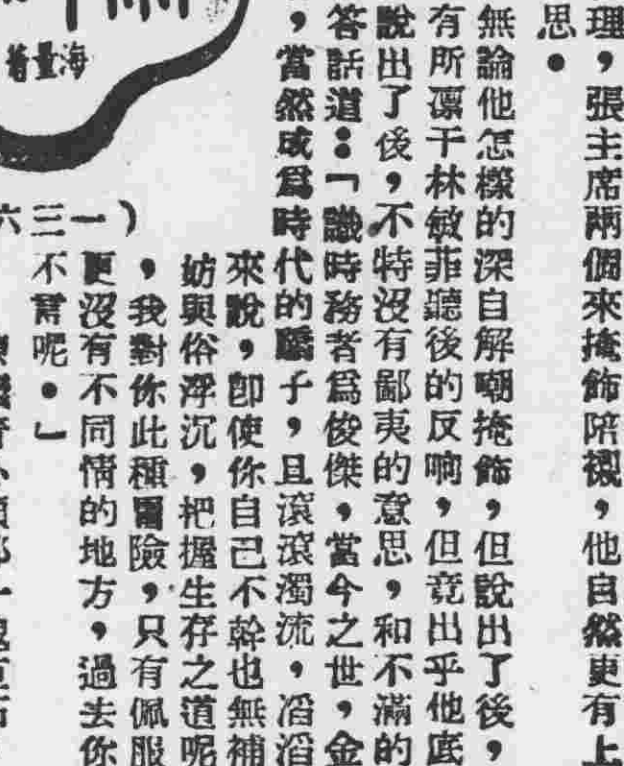 理，張主席兩個來掩飾陪襯，他自然更有上
思●
無論他怎樣的深自解嘲掩飾，但說出了後，
有所凛于林敏菲聽後的反响，但竟出乎他底
說出了後，不特沒有鄙夷的意思，和不滿的
答話道：「識時務者爲俊傑，當今之世，金
，當然成爲時代的驕子，且滾滾濁流，滔滔
來說，卽使你自己不幹也無補
妨與俗浮沉，把握生存之道呢
，我對你此種冒險，只有佩服
更沒有不同情的地方，過去你
不言呢●」
海量著
（一三六